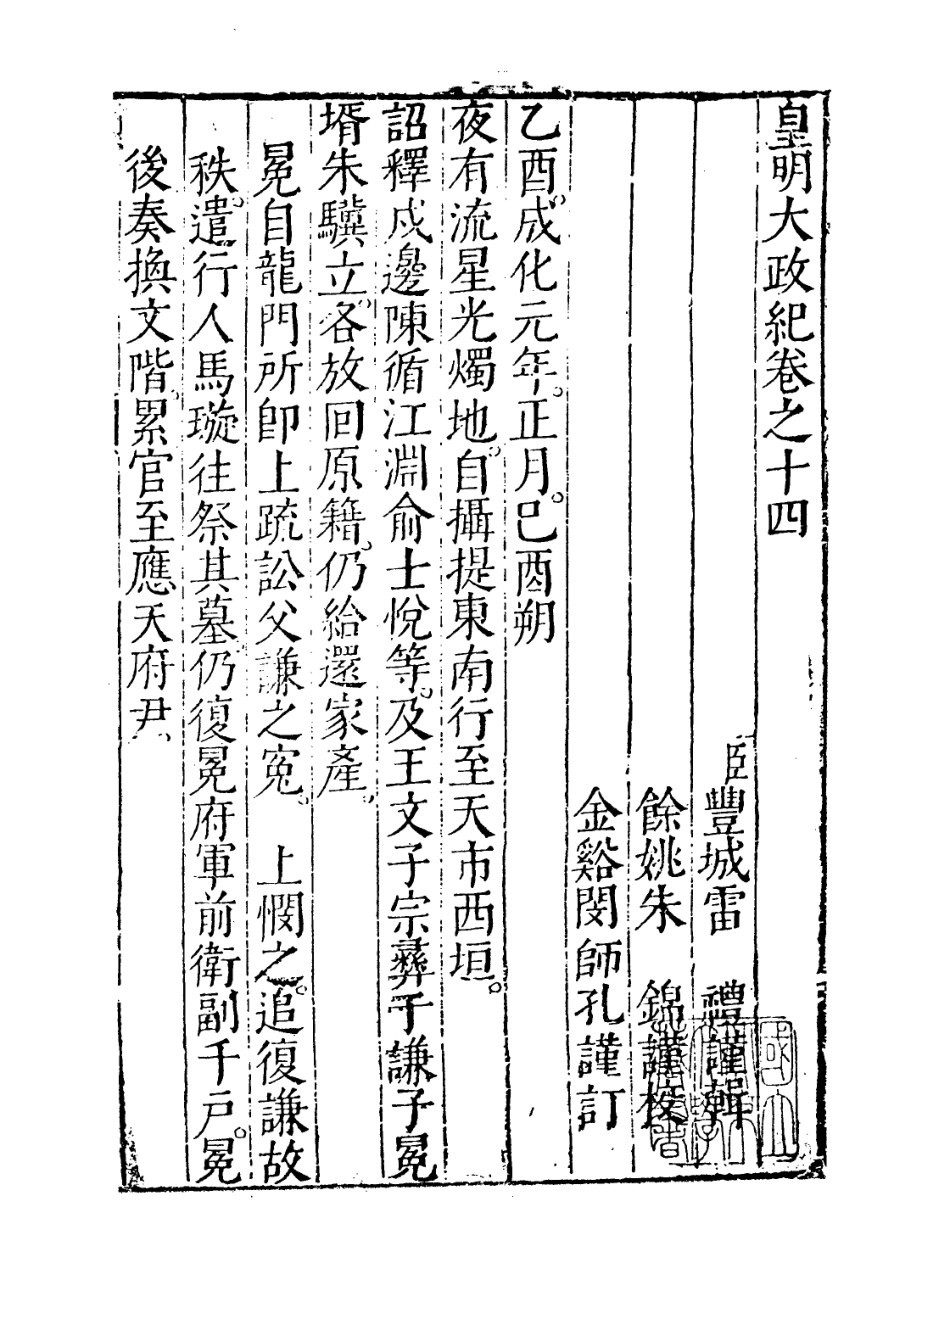 皇明大政紀卷之十四
臣豐城雷　禮謹輯
餘姚朱　錦謹校
金谿閔師孔謹訂
乙酉。成化元年。正月。己酉朔
夜有流星光燭地。自攝提東南行至天市西垣。
詔釋戍邊陳循江淵俞士悅等。及王文子宗彞于謙子冕
壻朱驥立各。放回原籍。仍給還家產。
冕自龍門所卽上疏訟父謙之寃。　上憫之。追復謙故
秩。遣行人馬璇往祭其墓仍復冕府軍前衛副千戶。冕
後奏換文階。累官至應天府尹